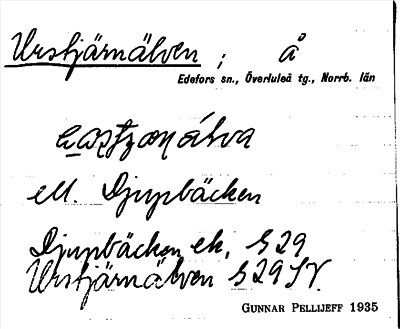 Urstjärnälven ; å
Edefors sn., Överluleå tg., Norrb. län
ell. Djupbäcken
Djupbäcken ek. S29
Urstjärnälven S29SV.
GUNNAR PELLIJEFF 1935